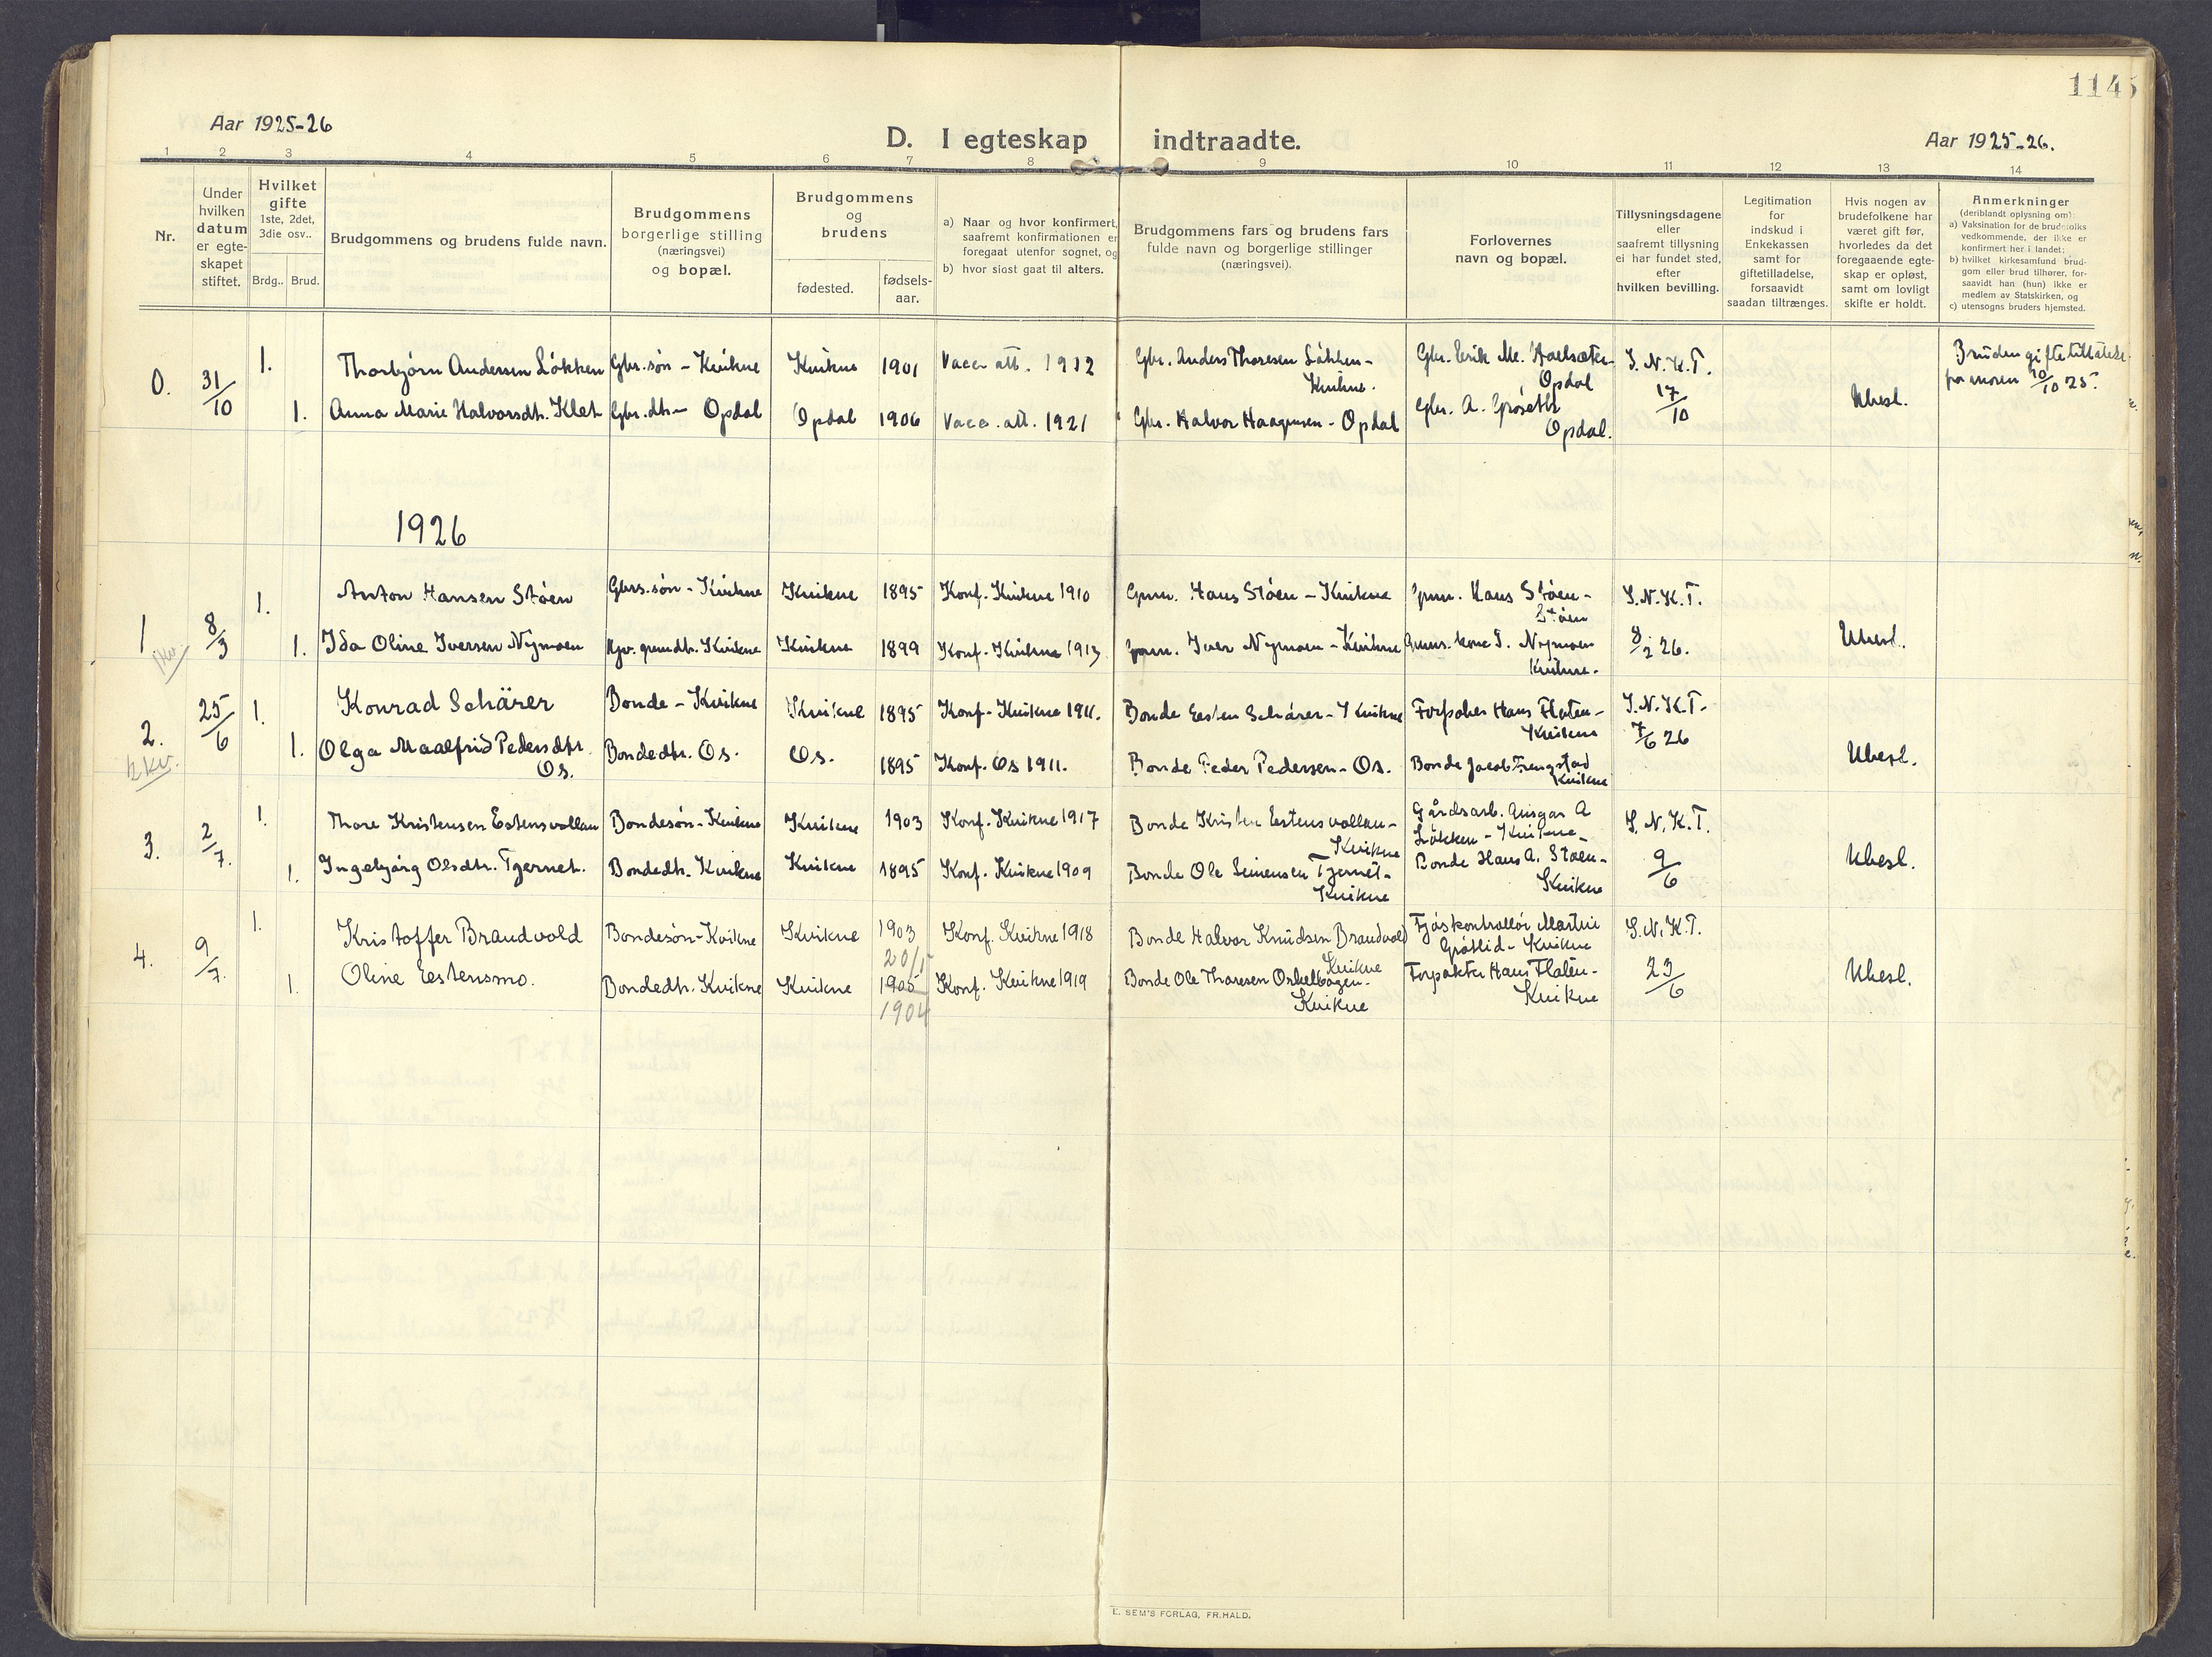 1145
Aar 1925-26
D. I egteskap indtraadte.
Aar 1925-26.
1 2 3 4 5 6 7 8 9 10 11 12 13 14
Nr.
Under
hvilken
datum
er egte-
skapet
stiftet.
Hvilket
gifte
1ste, 2det,
3die osv..
Brdg.. Brud.
Brudgommens og brudens fulde navn.
Brudgommens
borgerlige stilling
(næringsvei)
og bopæl.
Brudgommens
og
brudens
fødested.
fødsels-
aar.
a) Naar og hvor konfirmert,
saafremt konfirmationen er
foregaat utenfor sognet, og
b) hvor sidst gaat til alters.
Brudgommens fars og brudens fars
fulde navn og borgerlige stillinger
(næringsvei).
Forlovernes
navn og bopæl.
Tillysningsdagene
eller
saafremt tillysning
ei har fundet sted,
efter
hvilken bevilling.
Legitimation
for
indskud i
Enkekassen
samt for
giftetilladelse,
forsaavidt
saadan tiltrænges.
Hvis nogen av
brudefolkene har
været gift før,
hvorledes da det
foregaaende egte-
skap er opløst,
samt om lovligt
skifte er holdt.
Anmerkninger
(deriblandt oplysning om):
a) Vaksination for de brudefolks
vedkommende, der ikke er
konfirmert her i landet;
b) hvilket kirkesamfund brud-
gom eller brud tilhører, for-
saavidt han (hun) ikke er
medlem av Statskirken, og
c) utensogns bruders hjemsted.
0. 31/10
1. Thorbjørn Andersen Løkken Gbr.søn - Kvikne Kvikne 1901 Vacc. att. 1912 Gbr. Anders Thoresen Løkken-
Kvikne.
Gbr. Erik M.
Opdal
S.N.K.T.
17/10
1. Anna Marie Halvorsdtr. Klet Gbr.dtr - Opdal Opdal 1906 Vacc. att. 1921 Gbr. Halvor Haagensen - Opdal
Gbr. A. Grøseth
Opdal.
Ubesl.
Bruden giftetilladelse
fra moren 10/10 25.
1926
1 8/3
1. Anton Hansen Støen Gbrs.søn - Kvikne Kvikne 1895 Konf. Kvikne 1910 Gmn. Hans Støen - Kvikne Gmn. Hans Støen -
Støen
S.N.K.T.
1. Ida Oline Iversen Nymoen Kvikne Kvikne 1899 Konf. Kvikne 1913 Gmn. Iver Nymoen - Kvikne Gmns. kone I. Nymoen
Kvikne.
8/2 26.
Ubesl.
2. 25/6
1. Konrad Schärer Bonde - Kvikne Kvikne 1895 Konf. Kvikne 1911. Bonde Esten Schärer - Kvikne Forpakter Hans Flaten -
Kvikne
S.N.K.T.
7/6 26
1. Olga Maalfrid Pedersdtr.
Os.
Bondedtr. Os. Os. 1895 Konf. Os 1911. Bonde Peder Pedersen - Os. Bonde Jacob Frengstad
Kvikne
Ubesl.
3. 2/7.
1. Thore Kristensen Estensvollen Bondesøn - Kvikne Kvikne 1903 Konf. Kvikne 1917 Bonde Kristen Estensvollen -
Kvikne
Gårdsarb. Ansgar A
Løkken - Kvikne -
S.N.K.T.
1. Ingebjørg Olsdtr. Tjernet. Bondedtr. Kvikne Kvikne 1895 Konf. Kvikne 1909 Bonde Ole Simensen Tjernet -
Kvikne
Bonde Hans A. Støen -
Kvikne
9/6
Ubesl.
4. 9/7.
1. Kristoffer Brandvold Bondesøn - Kvikne Kvikne 1903 Konf. Kvikne 1918 Bonde Halvor Knudsen Brandvold
Kvikne
Fjøskontrollør Martin
Grøtlid - Kvikne
S.N.K.T.
1. Oline Eestensmo. Bondedtr. Kvikne Kvikne 1905 Konf. Kvikne 1919 Bonde Ole Thoresen
Kvikne
Forpakter Hans Flaten -
Kvikne
23/6
Ubesl.
1904
E. SEM'S FORLAG, FR.HALD.